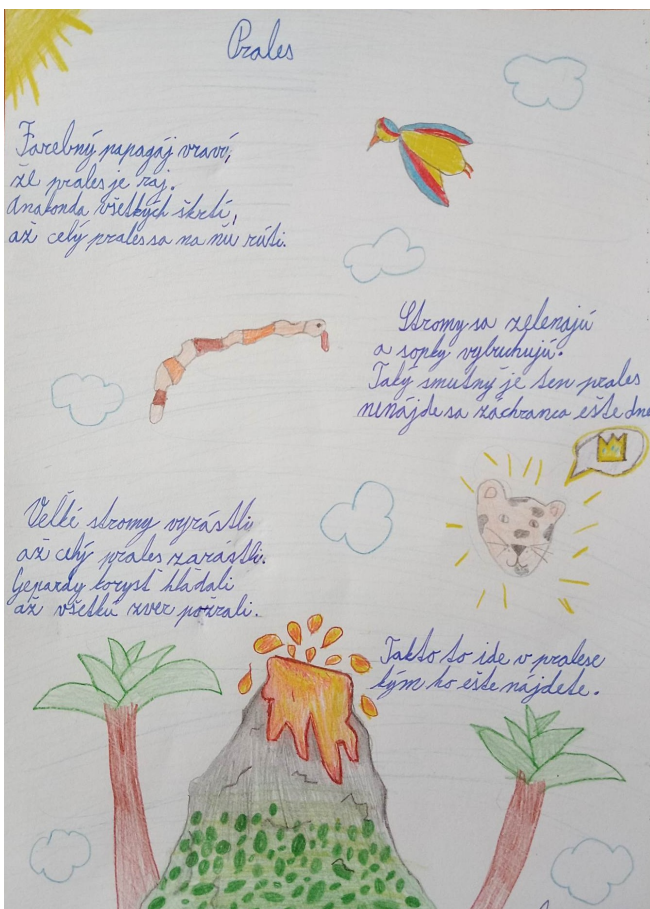 Prales
Farebný papagáj vraví,
že prales je raj.
Anakonda všetkých škrtí,
až celý prales sa na ňu rúti.
Stromy sa zelenajú
a sopky vybuchujú.
Taký smutný je ten prales
nenájde sa záchranca ešte dnes
Veľké stromy vyrástli
až celý prales zarástli.
Gepardy korysť hľadali
až všetku zver požrali.
Takto to ide v pralese
kým ho ešte nájdete.